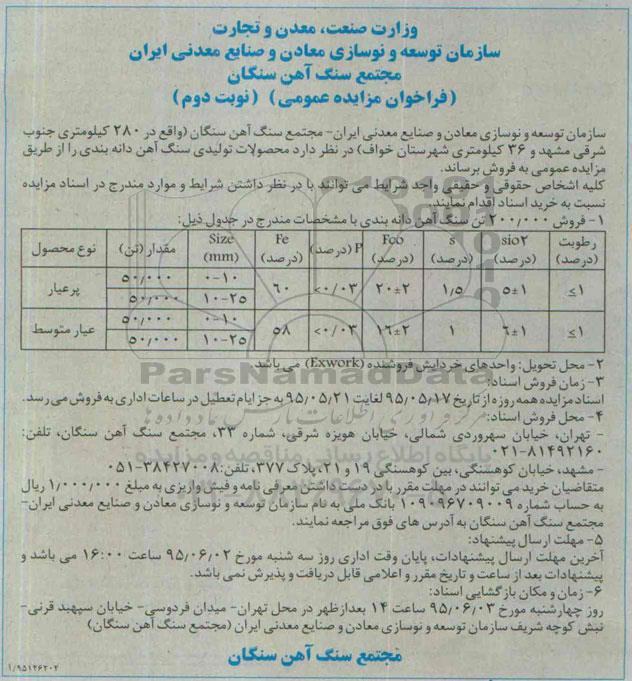 وزارت صنعت، معدن و تجارت
سازمان توسعه و نوسازی معادن و صنایع معدنی ایران
مجتمع سنگ آهن سنگان
(فراخوان مزایده عمومی) (نوبت دوم)
سازمان توسعه و نوسازی معادن و صنایع معدنی ایران- مجتمع سنگ آهن سنگان (واقع در ۲۸۰ کیلومتری جنوب
شرقی مشهد و ۳۶ کیلومتری شهرستان خواف) در نظر دارد محصولات تولیدی سنگ آهن دانه بندی را از طریق
مزایده عمومی به فروش برساند.
کلیه اشخاص حقوقی و حقیقی واجد شرایط می توانند با در نظر داشتن شرایط و موارد مندرج در اسناد مزایده
نسبت به خرید اسناد اقدام نمایند.
۱- فروش ۲۰۰/۰۰۰ تن سنگ آهن دانه بندی با مشخصات مندرج در جدول ذیل:
رطوبت (درصد) sio۲ (درصد) s (درصد) Feo (درصد) P (درصد) Fe (درصد) Size (mm) مقدار (تن) نوع محصول
≤۱ ۵±۱ ۱/۵ ۲۰±۲ <۰/۰۳ ۶۰ ۰-۱۰ ۵۰/۰۰۰ پرعیار
۱۰-۲۵ ۵۰/۰۰۰
≤۱ ۶±۱ ۱ ۱۶±۲ <۰/۰۳ ۵۸ ۰-۱۰ ۵۰/۰۰۰ عیار متوسط
۱۰-۲۵ ۵۰/۰۰۰
۲- محل تحویل: واحدهای خردایش فروشنده (Exwork) می باشد.
۳- زمان فروش اسناد:
اسناد مزایده همه روزه از تاریخ ۹۵/۰۵/۱۷ لغایت ۹۵/۰۵/۲۱ به جز ایام تعطیل در ساعات اداری به فروش می رسد.
۴- محل فروش اسناد:
- تهران، خیابان سهروردی شمالی، خیابان هویزه شرقی، شماره ۳۳، مجتمع سنگ آهن سنگان، تلفن:
۰۲۱-۸۱۴۹۲۱۶۰
- مشهد، خیابان کوهسنگی، بین کوهسنگی ۱۹ و ۲۱، پلاک ۳۷۷، تلفن: ۳۸۴۲۷۰۰۸-۰۵۱
متقاضیان خرید می توانند در مهلت مقرر با در دست داشتن معرفی نامه و فیش واریزی به مبلغ ۱/۰۰۰/۰۰۰ ریال
به حساب شماره ۰۱۰۹۰۹۶۷۰۹۰۰۹ بانک ملی به نام سازمان توسعه و نوسازی معادن و صنایع معدنی ایران-
مجتمع سنگ آهن سنگان به آدرس های فوق مراجعه نمایند.
۵- مهلت ارسال پیشنهاد:
آخرین مهلت ارسال پیشنهادات، پایان وقت اداری روز سه شنبه مورخ ۹۵/۰۶/۰۲ ساعت ۱۶:۰۰ می باشد و
پیشنهادات بعد از ساعت و تاریخ مقرر و اعلامی قابل دریافت و پذیرش نمی باشد.
۶- زمان و مکان بازگشایی اسناد:
روز چهارشنبه مورخ ۹۵/۰۶/۰۳ ساعت ۱۴ بعدازظهر در محل تهران- میدان فردوسی- خیابان سپهبد قرنی-
نبش کوچه شریف سازمان توسعه و نوسازی معادن و صنایع معدنی ایران (مجتمع سنگ آهن سنگان)
مجتمع سنگ آهن سنگان
۱/۹۵۱۲۶۲۰۲
ParsNamadData